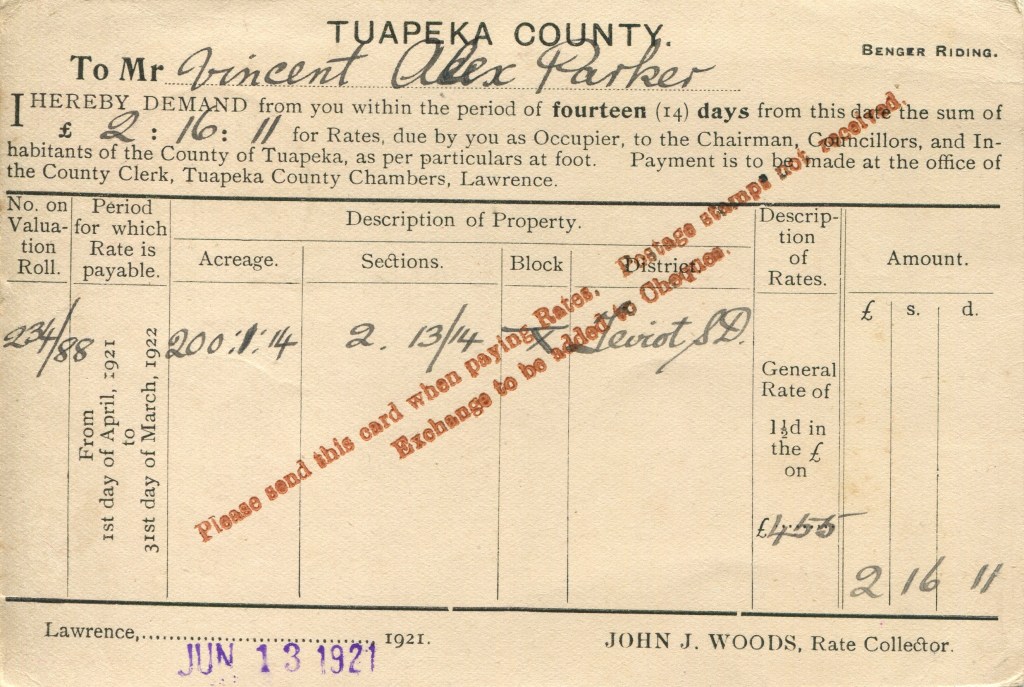 TUAPEKA COUNTY.
BENGER RIDING.
To Mr Vincent Alex Parker
I HEREBY DEMAND from you within the period of fourteen (14) days from this date the sum of
£ 2 : 16 : 11 for Rates, due by you as Occupier, to the Chairman, Councillors, and In-
habitants of the County of Tuapeka, as per particulars at foot. Payment is to be made at the office of
the County Clerk, Tuapeka County Chambers, Lawrence.
No. on
Valua-
tion
Roll.
Period
for which
Rate is
payable.
Description of Property.
Acreage.
Sections.
Block
District.
Descrip-
tion
of
Rates.
Amount.
£ s. d.
234/88
From
1st day of April, 1921
to
31st day of March, 1922
200:1:14
2. 13/14
X
Teviot S.D.
General
Rate of
1½d in
the £
on
£455
2 16 11
Please send this card when paying Rates. Postage stamps not received.
Exchange to be added to Cheques.
Lawrence,.................................... 1921.
JUN 13 1921
JOHN J. WOODS, Rate Collector.